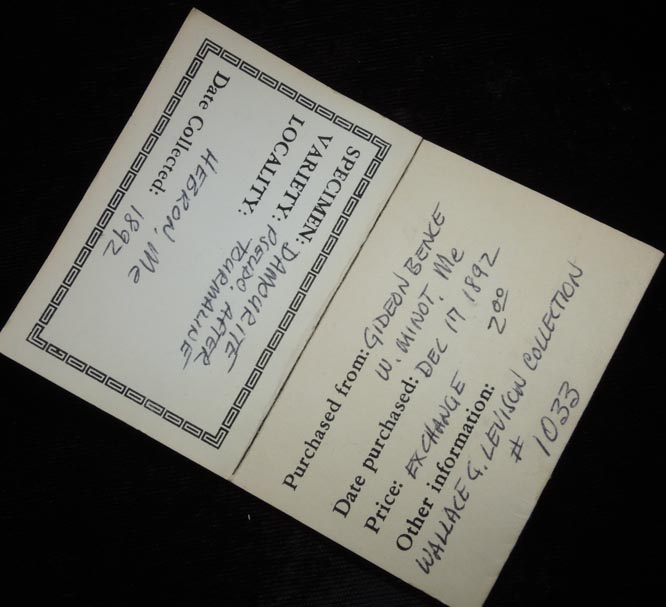 SPECIMEN: DAMOURITE
VARIETY: PSEUDO AFTER
TOURMALINE
LOCALITY:
HEBRON, Me
Date Collected: 1892
Purchased from: GIDEON BENCE
W. MINOT. Me
Date purchased: DEC 17, 1892
Price: EXCHANGE 200
Other information:
WALLACE G. LEVISON COLLECTION
# 1033